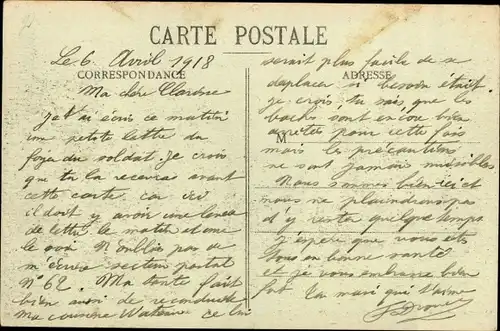 CARTE POSTALE
Le 6 Avril 1918
CORRESPONDANCE
Ma chère
Je t'ai écris ce matin
une petite lettre du
foyer du soldat. Je crois
que tu la recevra avant
cette carte car ici
il doit y avoir une levée
de lettre le matin et une
le soir. N'oublis pas de
m'écrire secteur postal
N° 62. Ma tante fait
bien aussi de reconduire
ma cousine ce lui
serait plus facile de se
déplacer si besoin était.
ADRESSE
je crois, tu sais, que les
boches sont encore bien
arretés pour cette fois
M
mais les précautions
ne sont jamais nuisibles.
Nous sommes bien ici et
nous ne plaindrons pas
d'y rester quelque temps
J'espère que vous ets
tous en bonne santé
et je vous embrasse bien
fort Ton mari qui t'aime